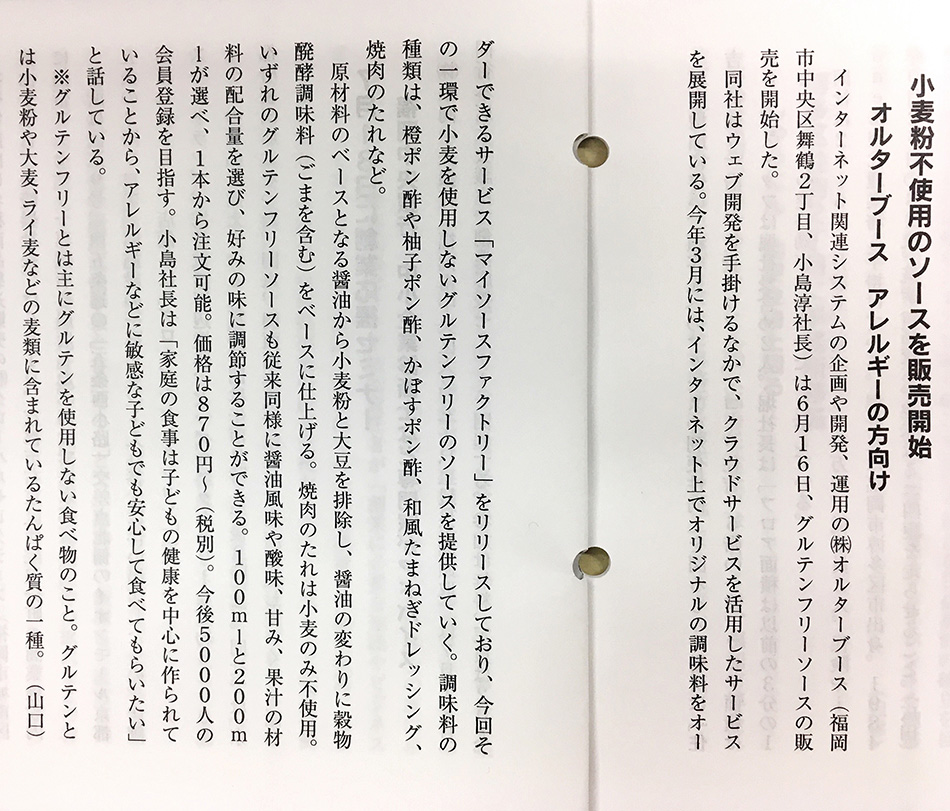 小麦粉不使用のソースを販売開始
オルターブース　アレルギーの方向け
インターネット関連システムの企画や開発、運用の㈱オルターブース（福岡
市中央区舞鶴２丁目、小島淳社長）は６月１６日、グルテンフリーソースの販
売を開始した。
同社はウェブ開発を手掛けるなかで、クラウドサービスを活用したサービス
を展開している。今年３月には、インターネット上でオリジナルの調味料をオー
ダーできるサービス「マイソースファクトリー」をリリースしており、今回そ
の一環で小麦を使用しないグルテンフリーのソースを提供していく。調味料の
種類は、橙ポン酢や柚子ポン酢、かぼすポン酢、和風たまねぎドレッシング、
焼肉のたれなど。
原材料のベースとなる醤油から小麦粉と大豆を排除し、醤油の変わりに穀物
醗酵調味料（ごまを含む）をベースに仕上げる。焼肉のたれは小麦のみ不使用。
いずれのグルテンフリーソースも従来同様に醤油風味や酸味、甘み、果汁の材
料の配合量を選び、好みの味に調節することができる。１００ｍｌと２００ｍ
ｌが選べ、１本から注文可能。価格は８７０円～（税別）。今後５０００人の
会員登録を目指す。小島社長は「家庭の食事は子どもの健康を中心に作られて
いることから、アレルギーなどに敏感な子どもでも安心して食べてもらいたい」
と話している。
※グルテンフリーとは主にグルテンを使用しない食べ物のこと。グルテンと
は小麦粉や大麦、ライ麦などの麦類に含まれているたんぱく質の一種。（山口）